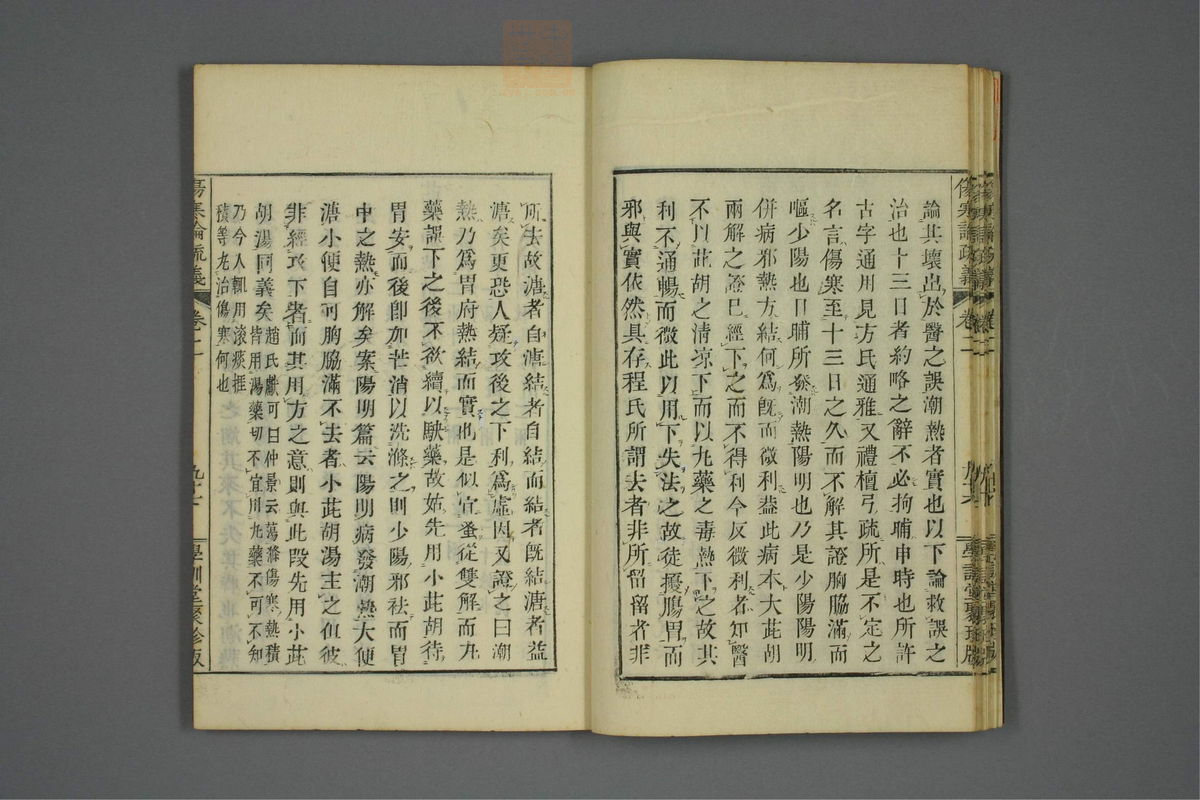 論其壞出於醫之誤潮熱者實也以下論救誤之
治也十三日者約略之辭不必拘晡申時也所許
古字通用見方氏通雅又禮檀弓疏所是不定之
名言傷寒至十三日之久而不解其證胸脇滿而
嘔少陽也日晡所發潮熱陽明也乃是少陽陽明
併病邪熱方結何爲旣而微利蓋此病本大茈胡
兩解之證已經下之而不得利今反微利者知醫
不以茈胡之淸凉下而以丸藥之毒熱下之故其
利不通暢而微此以用下失法之故徒擾腸胃而
邪與實依然具存程氏所謂去者非所留留者非
所去故溏者自溏結者自結而結者旣結溏者益
溏矣更恐人疑攻後之下利爲虛因又證之曰潮
熱乃爲胃府熱結而實也是似宜蚤從雙解而丸
藥誤下之後不欲續以駃藥故姑先用小茈胡待
胃安而後卽加芒消以洗滌之則少陽邪袪而胃
中之熱亦解矣案陽明篇云陽明病發潮熱大便
溏小便自可胸脇滿不去者小茈胡湯主之但彼
非經攻下者而其用方之意則與此段先用小茈
胡湯同義矣
趙氏獻可曰仲景云蕩滌傷寒熱積
皆用湯藥切不宜用丸藥不可不知
乃今人輒用滚痰捱
積等丸治傷寒何也
傷寒論疏義
卷二
學訓堂聚珍版